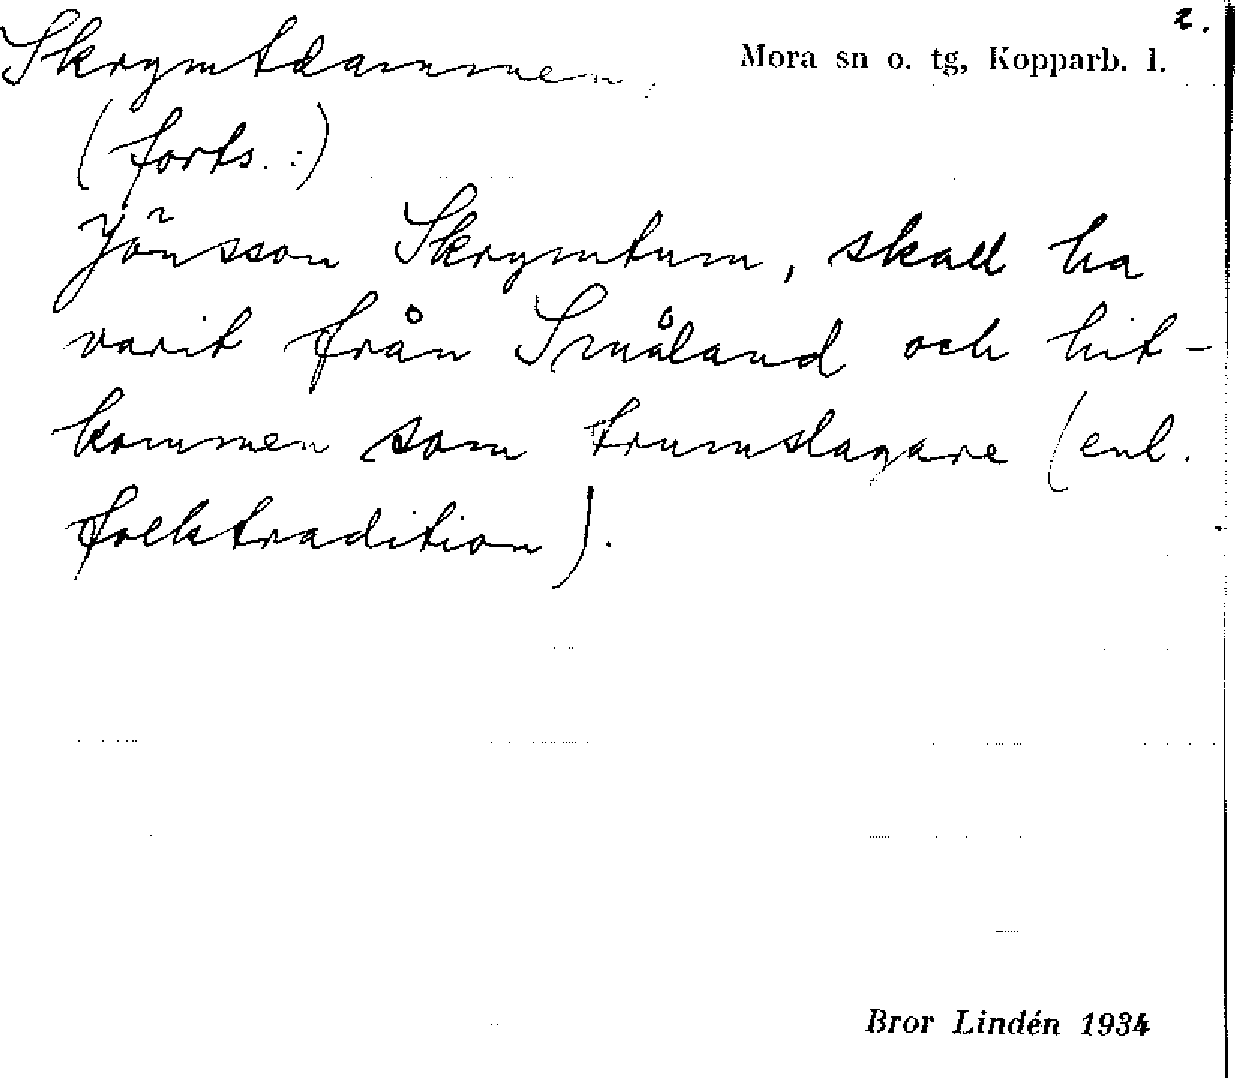 2.
Skrymtdammen. Mora sn o. tg, Kopparb. l.
(forts.:)
Jönsson Skrymtum, skall ha
varit från Småland och hit-
kommen som trumslagare (enl.
folktradition).
Bror Lindén 1934